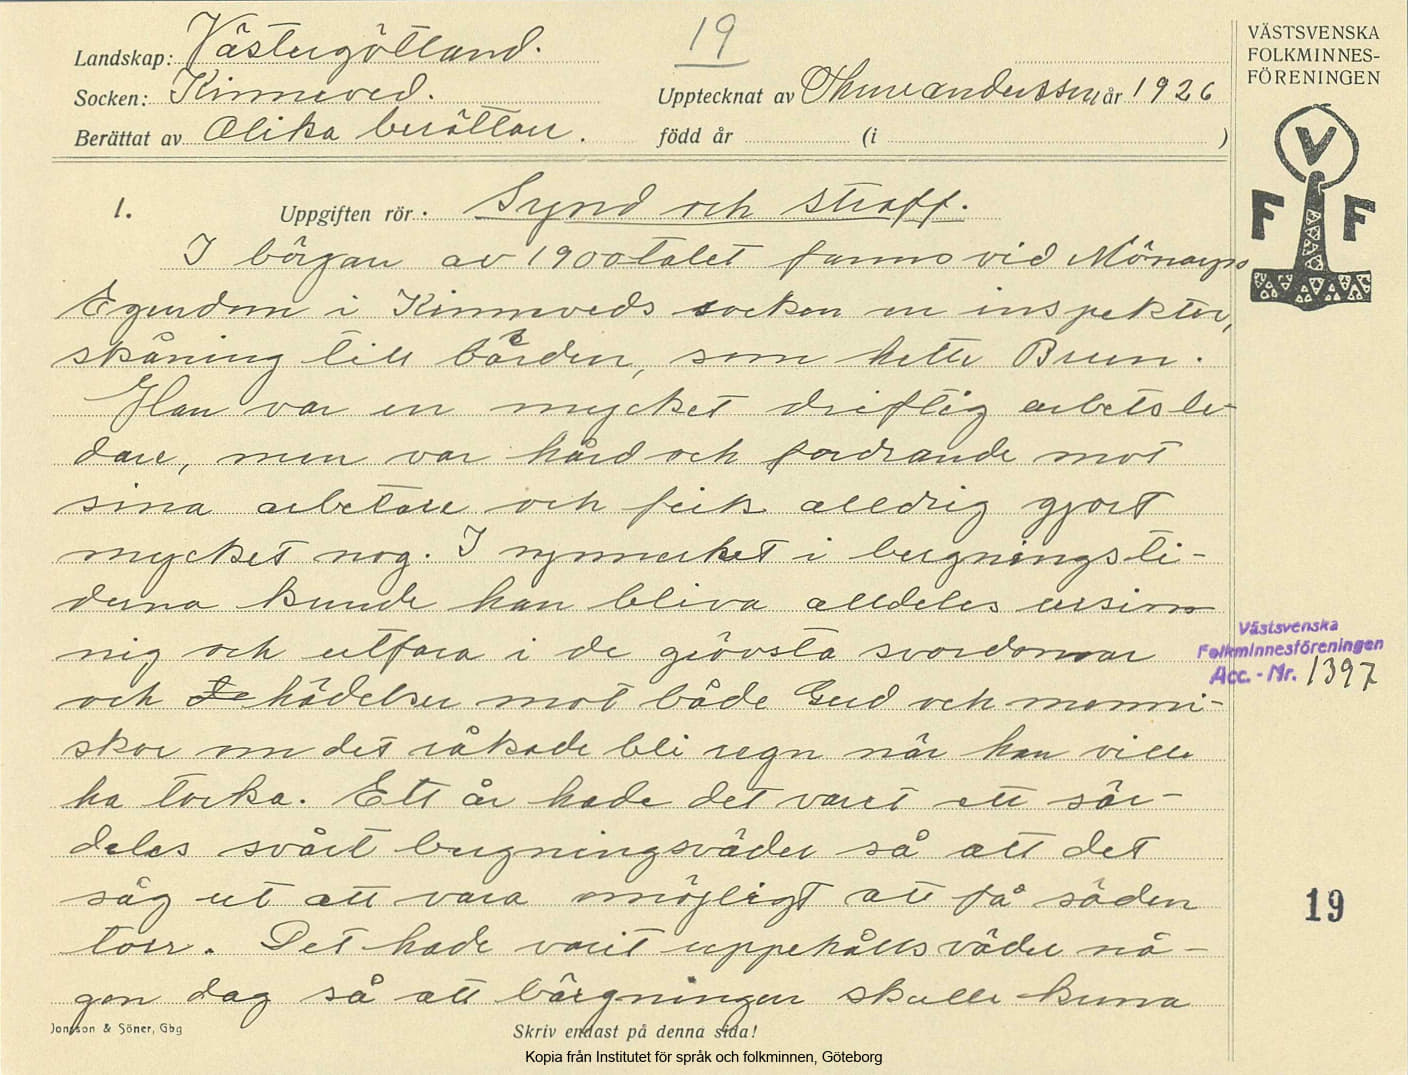 19
VÄSTSVENSKA
FOLKMINNES-
FÖRENINGEN
Landskap: Västergötland.
Socken: Kinneved.
Upptecknat av Thure Andersson år 1926
Berättat av Olika berättare.
född år (i )
V
F F
1.
Uppgiften rör: Synd och straff.
I början av 1900talet fanns vid Mönarps
Egendom i Kinneveds socken en inspektor,
skåning till börden, som hette Bruen.
Han var en mycket driftig arbetsle-
dare, men var hård och fordrande mot
sina arbetare och fick alldrig gjort
mycket nog. I synnerhet i bergningsti-
derna kunde han bliva alldeles ursinn
nig och utfara i de grövsta svordomar
och hädelser mot både Gud och menni-
skor om det råkade bli regn när han ville
ha torka. Ett år hade det varit ett sär-
deles svårt bergningsväder så att det
såg ut att vara omöjligt att få säden
torr. Det hade varit uppehållsväder nå-
gon dag så att bärgningen skulle kuna
Västsvenska
Folkminnesföreningen
Acc. - Nr. 1397
19
Jonsson & Söner, Gbg
Skriv endast på denna sida!
Kopia från Institutet för språk och folkminnen, Göteborg